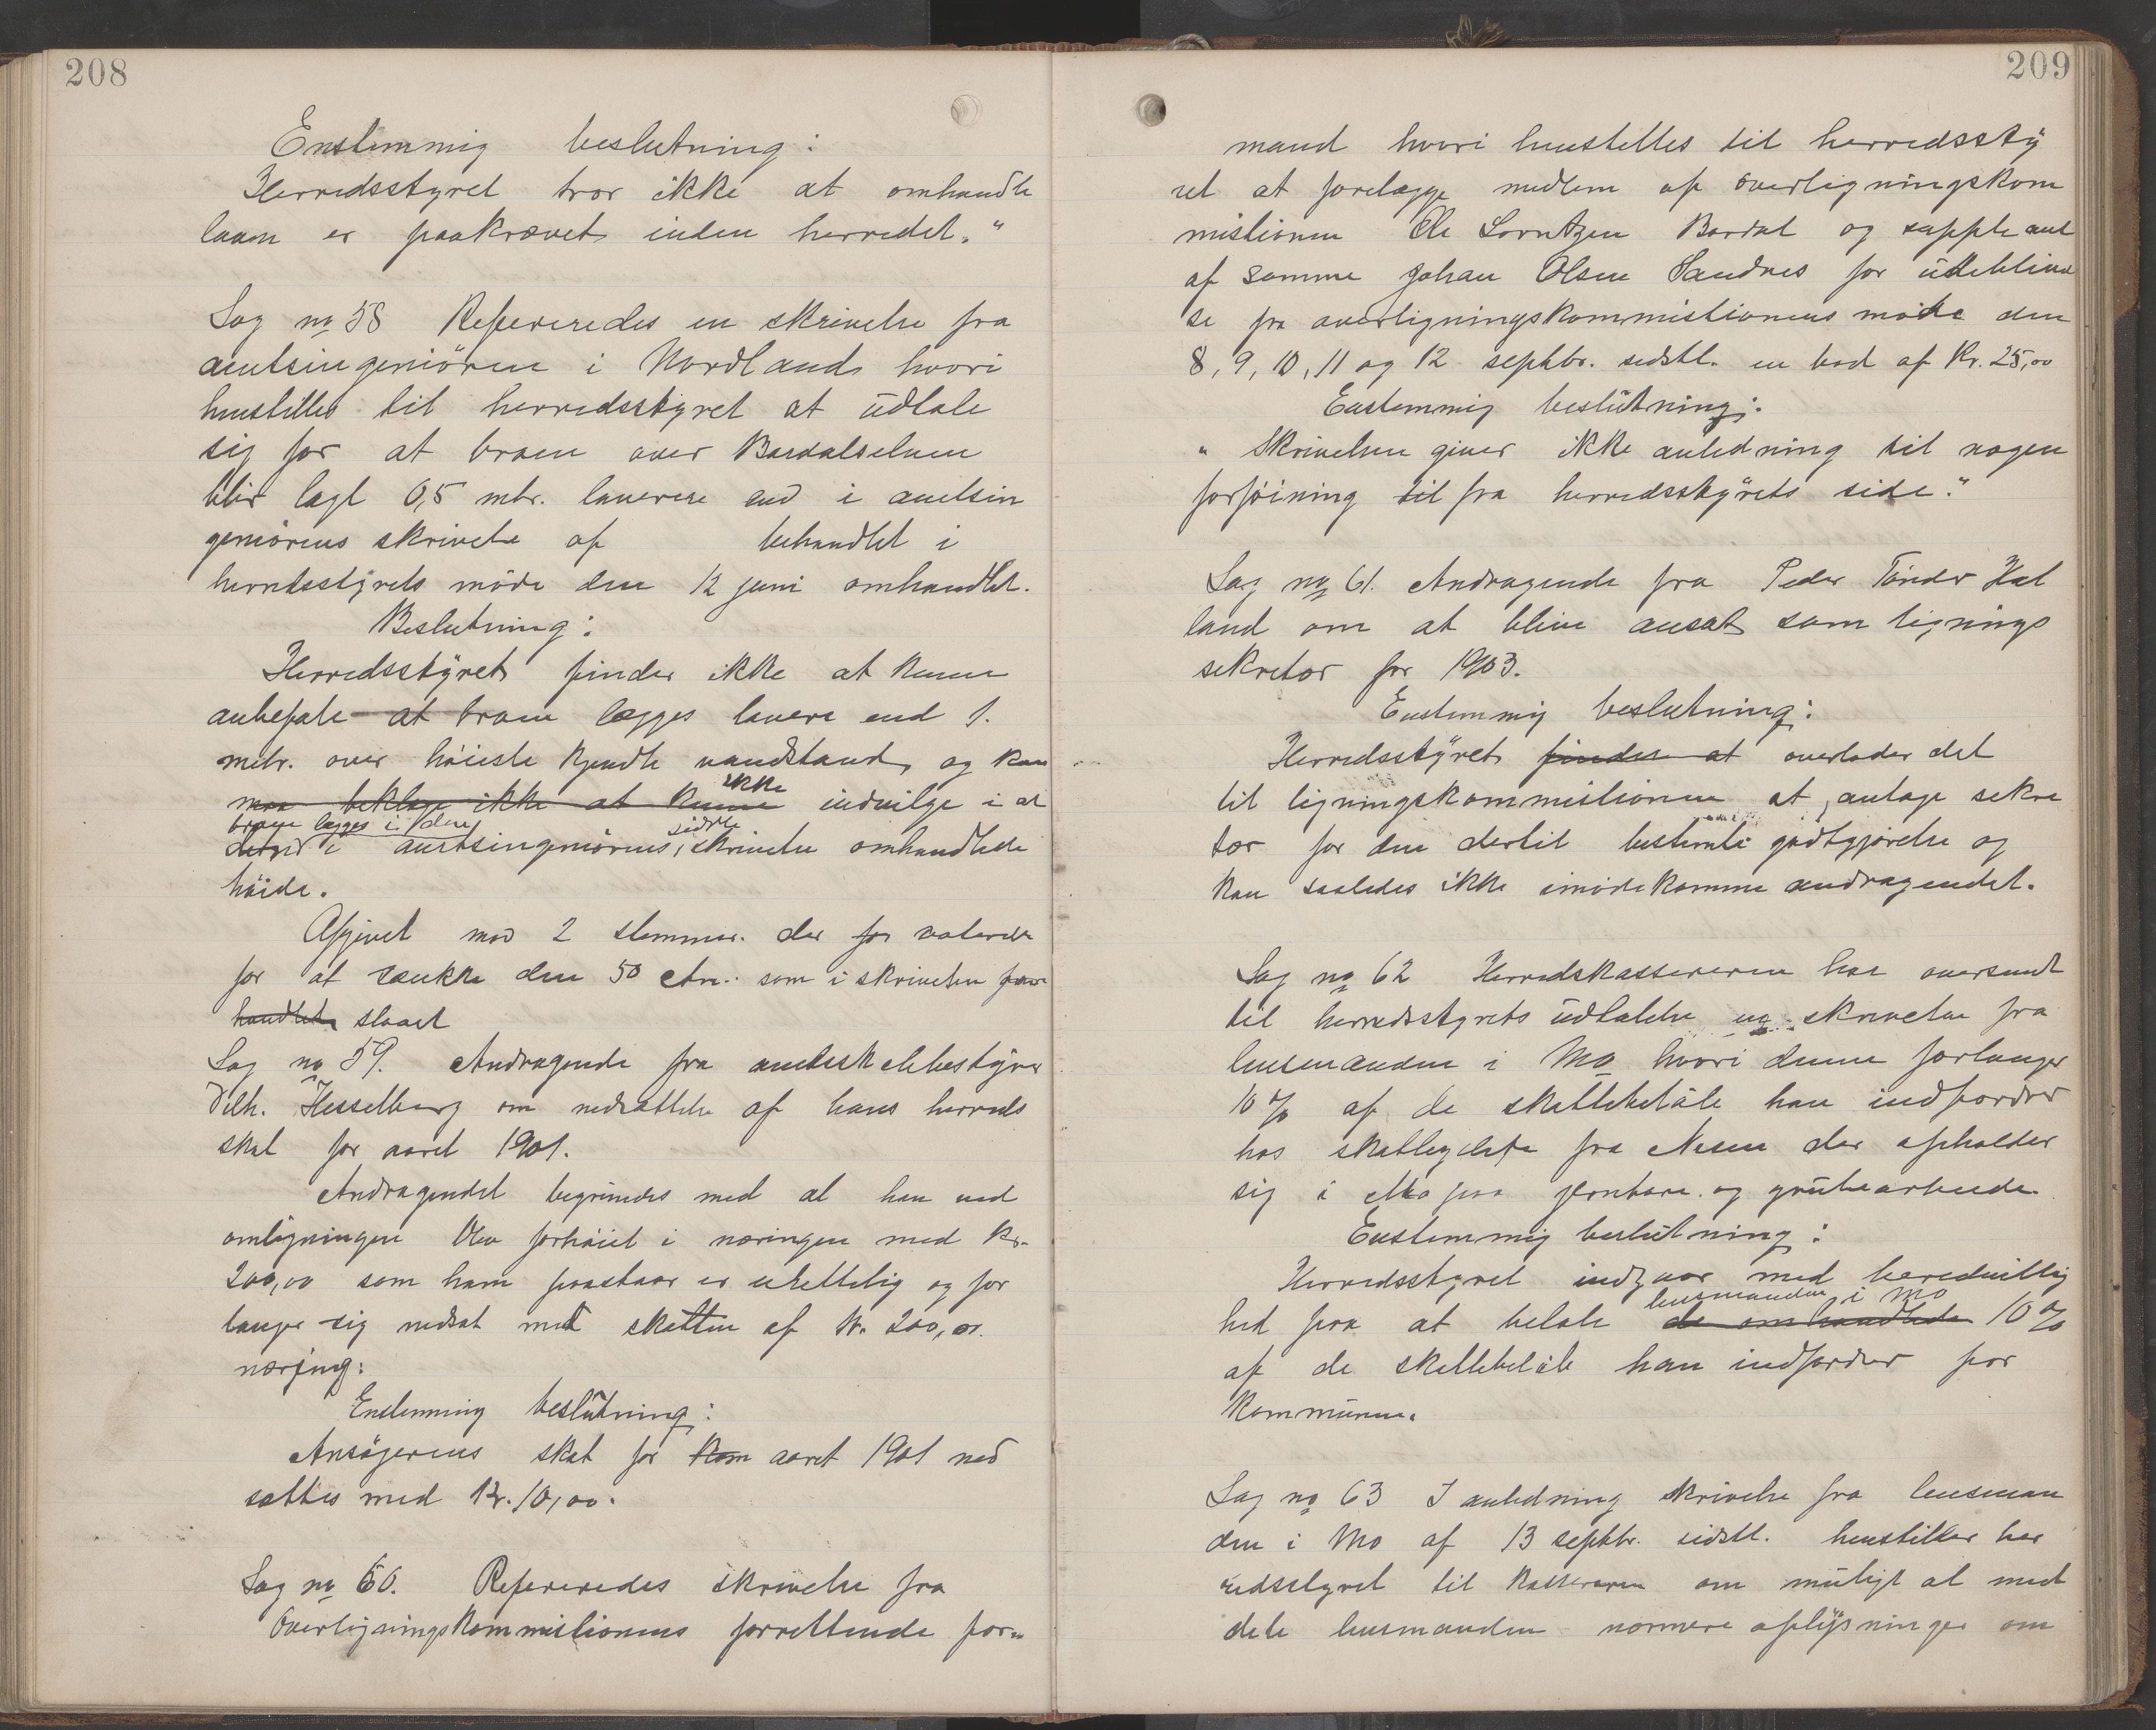 208
Enstemmig beslutning:
Herredsstyret tror ikke at omhandle
laan er paakrævet inden herredet."
Sag no 58 Refereredes en skrivelse fra
amtsingeniören i Nordland hvori
henstilles til herredsstyret at üdtale
sig for at broen over Bardalselven
blir lagt 0,5 mtr. laverere end i amtsin
geniörens skrivelse af behandlet i
herredsstyrets möde den 12 juni omhandlet.
Beslutning:
Herredsstyret finder ikke at kunne
anbefale at broen lægges lavere end 1.
metr. over höieste kjendte vandstand, og kan
maa beklage ikke at kunne ikke indvilge i at
broen lægges i den
i amtsingeniörens sidste skrivelse omhandlede
höide.
Afgivet mod 2 stemmer. der for voterede
for at sænke den 50 ctm. som i skrivelsen
handlet staaet
Sag no 59. Andragende fra amtsskolebestyrer
Vilh. Hesselberg om nedsættelse af hans herreds
skat for aaret 1901.
Andragendet begrundes med at han ved
omligningen blev forhöiet i næringen med kr.
200,00 som ham paastaar er urettelig og for
langer sig nedsat med skatten af kr. 200,00.
næring:
Enstemmig beslütning:
Ansögerens skat for kom aaret 1901 ned
sættes med kr. 10,00.
Sag no 60. Refereredes skrivelse fra
Overligningskommisionens forrettende for-
209
mand hvori henstilles til herredssty
ret at forelægge medlem af overligningskom
mistionen Ole Lorntzen Bardal og suppleant
af samme Johan Olsen Sandnes for üdeblivel
se fra overligningskommistionens möde den
8, 9, 10, 11 og 12 septbr. sidstl. en bod af Kr. 25,00
Enstemmig beslütning:
" Skrivelsen giver ikke anledning til nogen
forföining til fra herredsstyrets side."
Sag no 61. Andragende fra Peder Tönder Hal
land om at blive ansat som lignings
sekretær for 1903.
Enstemmig beslutning:
Herredsstyret finder at overlader det
til ligningskommistionen at antage sekre
tær for den dertil bestemte godtgjörelse og
kan saaledes ikke imödekomme andragendet.
Sag no 62 Herredskassereren har oversendt
til herredsstyrets üdtalelse en skrivelse fra
lensmanden i Mo hvori denne forlanger
10 % af de skattebelöb han indfordrer
hos skatteydere fra Nesna der opholder
sig i Mo paa jernbane og grübearbeide.
Enstemmig beslütning:
Herredsstyret indgaar med beredvillig
hed paa at betale de omhandlede lensmanden i Mo 10 %
af de skattebelöb han indfordrer for
kommünen.
Sag no 63 I anledning skrivelse fra lensman
den i Mo af 13 septbr. sidstl. henstiller her
redsstyret til kassereren om müligt at med
dele lensmanden nærmere oplysninger om